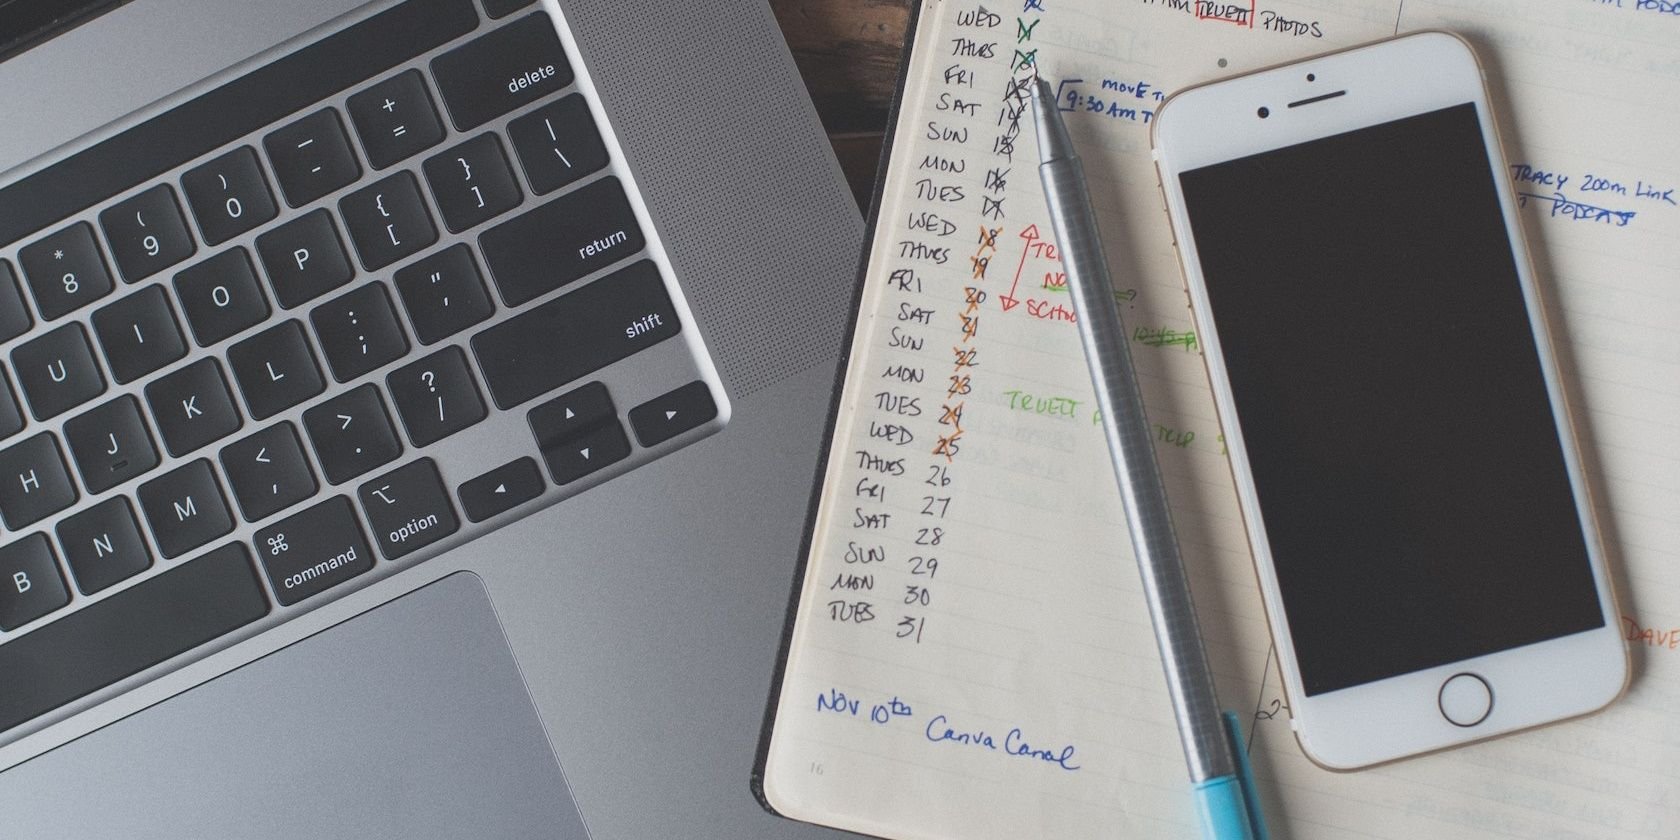 delete
+
=
—
-
)
0
(
9
*
8
|
\
}
]
{
[
P
O
I
U
return
"
,
:
;
L
K
J
H
shift
?
/
>
.
<
,
M
N
B
option
command
TRUETT PHOTOS
WED 11
THURS 12
FRI 13
SAT 14
SUN 15
MON 16
TUES 17
WED 18
THURS 19
FRI 20
SAT 21
SUN 22
MON 23
TUES 24
WED 25
THURS 26
FRI 27
SAT 28
SUN 29
MON 30
TUES 31
MOVE
9:30 AM
TRUETT
TRIP
Nov 10th Canva Canal
16
TRACY ZOOM LINK
PODCAST
DAVE